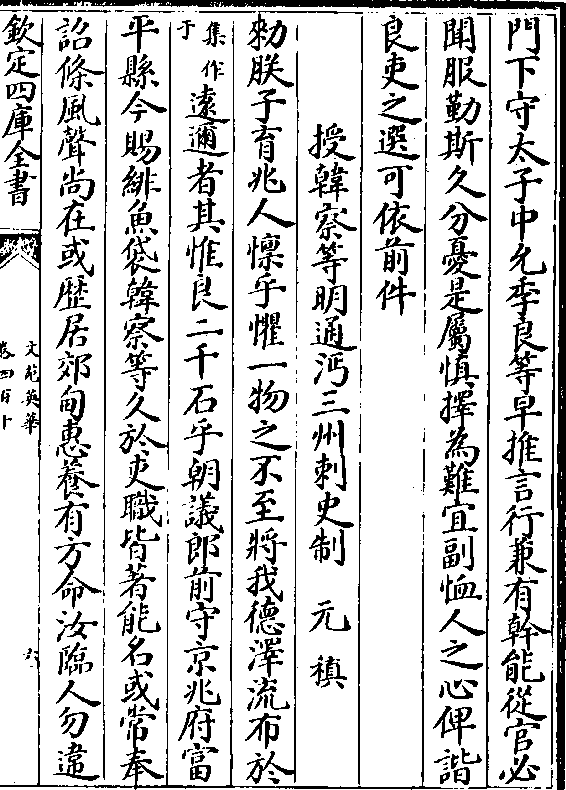 門下守太子中允季良等早推言行兼有幹能從官必
聞服勤斯久分憂是屬慎擇為難宜副恤人之心俾諧
良吏之選可依前件
授韓察等明通沔三州刺史制　元稹
勑朕子育兆人懔乎懼一物之不至將我德澤流布於
集作于遠邇者其惟良二千石乎朝議郎前守京兆府富
平縣令賜緋魚袋韓察等久於吏職皆著能名或常奉
詔條風聲尚在或歴居郊甸惠養有方命汝臨人勿違
欽定四庫全書
文苑英華
卷四百十
六